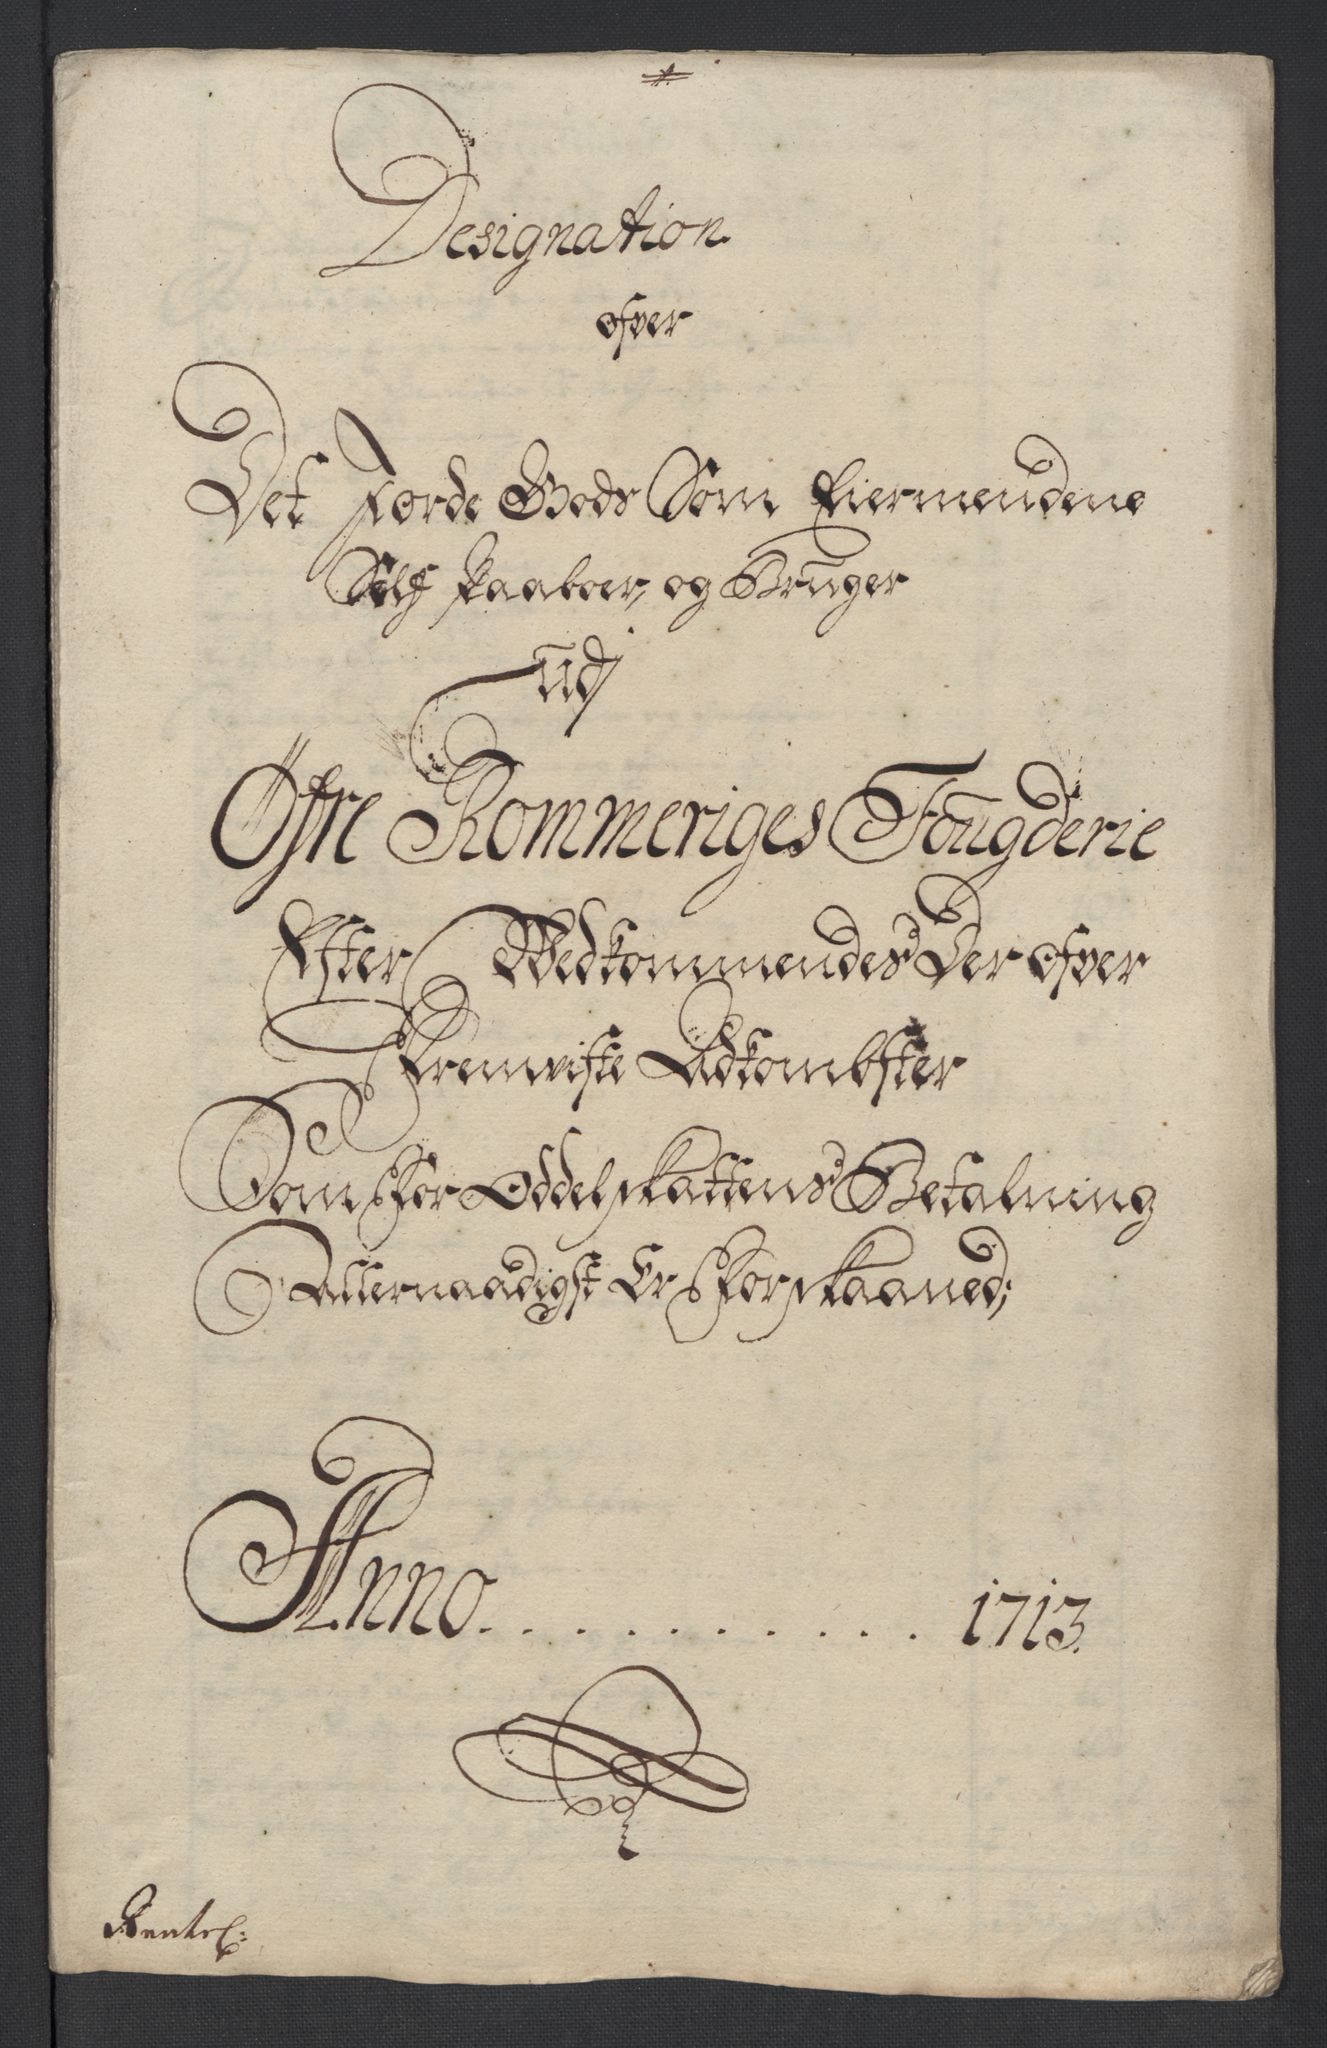 Designation
ofver
Det Jorde Gods Som Eiermendene
Self paaboer, og Bruger
udj
Øfre Rommeriges Fougderie
Efter Wedkommendes Der ofver
Fremviste Adkombster
Som for Oddelskattens Betalning
Allernaadigst Er forskaaned;
Anno. . . . . . . . . . . 1713.